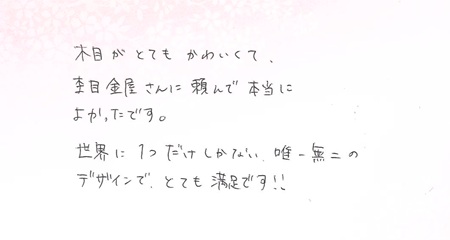 木目が とても かわいくて、
杢目金屋さんに 頼んで 本当に
よかったです。
世界に 1つだけしかない 唯一無二の
デザインで、とても 満足です!!